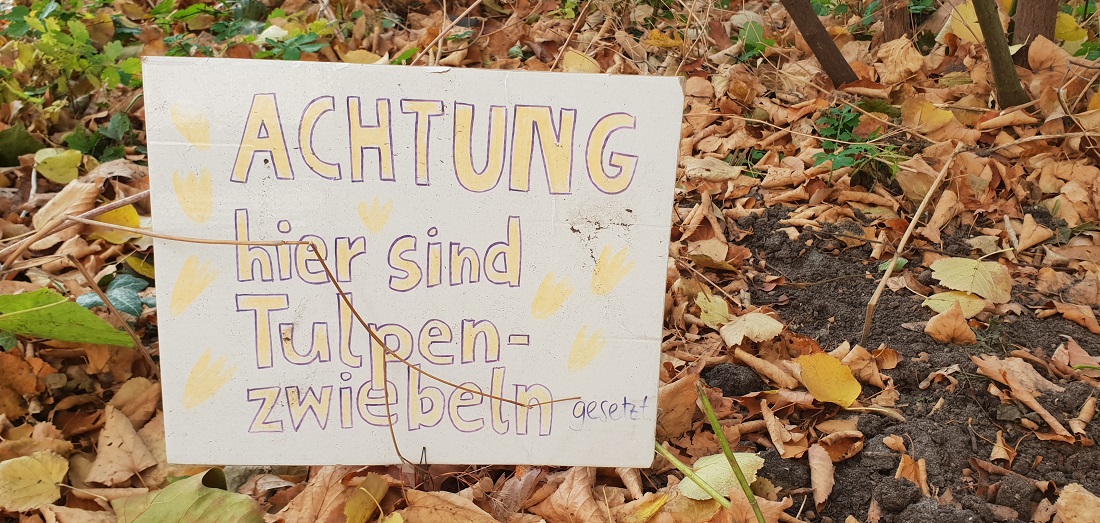 ACHTUNG
hier sind
Tulpen-
zwiebeln gesetzt